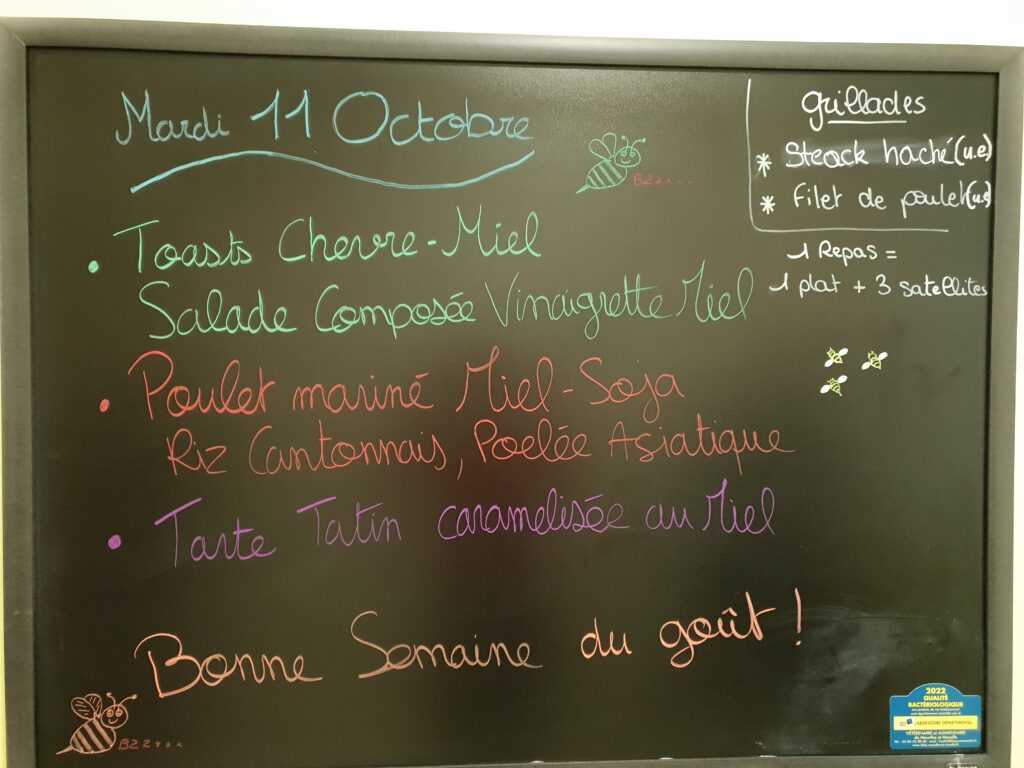 Mardi 11 Octobre
BZZ...
Grillades
* Steack haché (u.e)
* Filet de poulet (u.e)
1 Repas =
1 plat + 3 satellites
• Toasts Chevre-Miel
Salade Composée Vinaigrette Miel
• Poulet mariné Miel-Soja
Riz Cantonnais, Poelée Asiatique
• Tarte Tatin caramelisée au Miel
Bonne Semaine du goût !
BZZ...
2022
QUALITÉ
BACTÉRIOLOGIQUE
Les produits de cet établissement
LABORATOIRE DÉPARTEMENTAL
VÉTÉRINAIRE et ALIMENTAIRE
de Meurthe et Moselle